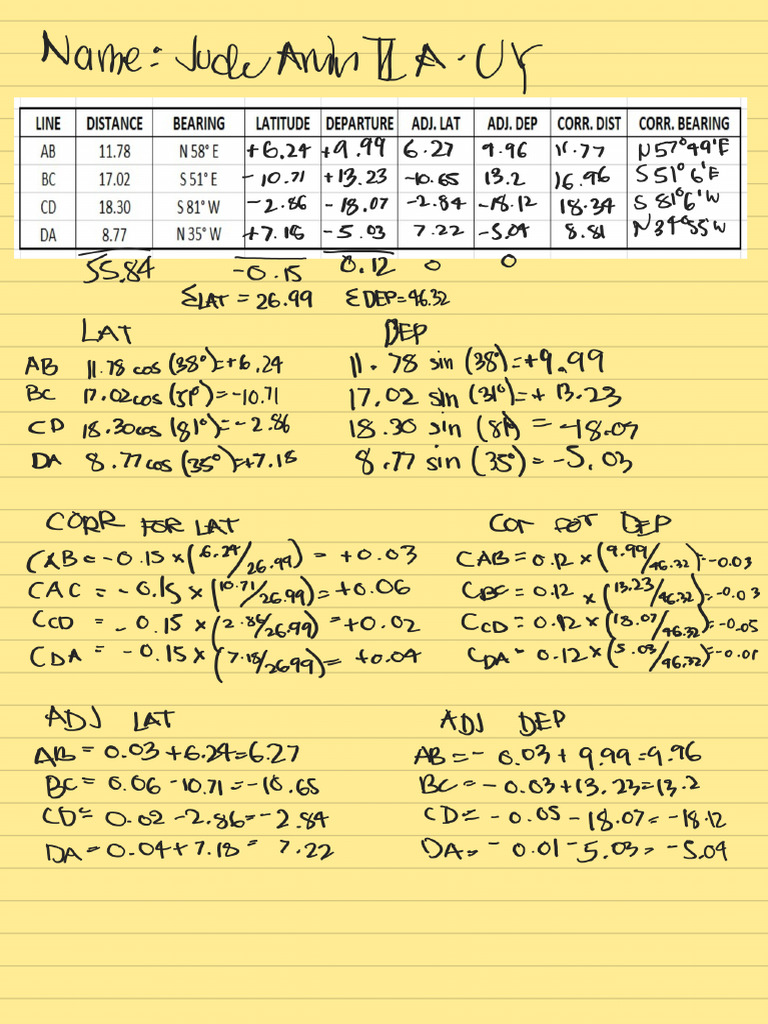 Name: Jude Amin II A-Uy
LINE DISTANCE BEARING LATITUDE DEPARTURE ADJ. LAT ADJ. DEP CORR. DIST CORR. BEARING
AB 11.78 N 58° E +6.24 +9.99 6.27 9.96 11.77 N57°49'E
BC 17.02 S 51° E -10.71 +13.23 -10.65 13.2 16.96 S 51°6'E
CD 18.30 S 81° W -2.86 -18.07 -2.84 -18.12 18.34 S 81°6'W
DA 8.77 N 35° W +7.18 -5.03 7.22 -5.04 8.81 N34°55'W
55.84 -0.15 0.12 0 0
ΣLAT = 26.99 ΣDEP=46.32
LAT DEP
AB 11.78 cos (38°)=+6.24 11.78 sin (38°)=+9.99
BC 17.02 cos (51°)=-10.71 17.02 sin (31°)=+13.23
CD 18.30 cos (81°)=-2.86 18.30 sin (81°) = -18.07
DA 8.77 cos (35°)=+7.18 8.77 sin (35°)=-5.03
CORR FOR LAT COR FOR DEP
CAB = -0.15 x (6.24/26.99) = +0.03 CAB = 0.12 x (9.99/46.32)=-0.03
CAC = -0.15 x (10.71/26.99)= +0.06 CBC = 0.12 x (13.23/46.32)=-0.03
CCD = -0.15 x (2.86/26.99) = +0.02 CCD = 0.12 x (18.07/46.32)=-0.05
CDA = -0.15 x (7.18/26.99)= +0.04 CDA = 0.12 x (5.03/46.32)=-0.01
ADJ LAT ADJ DEP
AB = 0.03 +6.24=6.27 AB = -0.03 + 9.99=9.96
BC = 0.06 -10.71 = -10.65 BC = -0.03+13.23=13.2
CD = 0.02 -2.86= -2.84 CD = -0.05 -18.07= -18.12
DA = 0.04+7.18 = 7.22 DA = -0.01 -5.03= -5.04